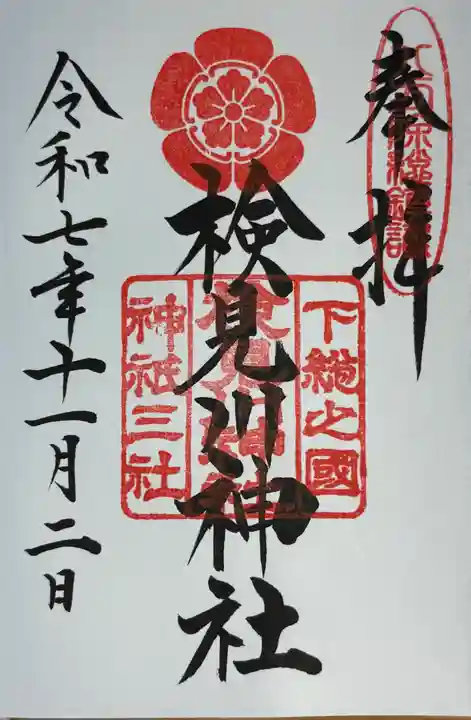 奉拝
下總之國
検見川神社
神祇三社
令和七年十一月二日